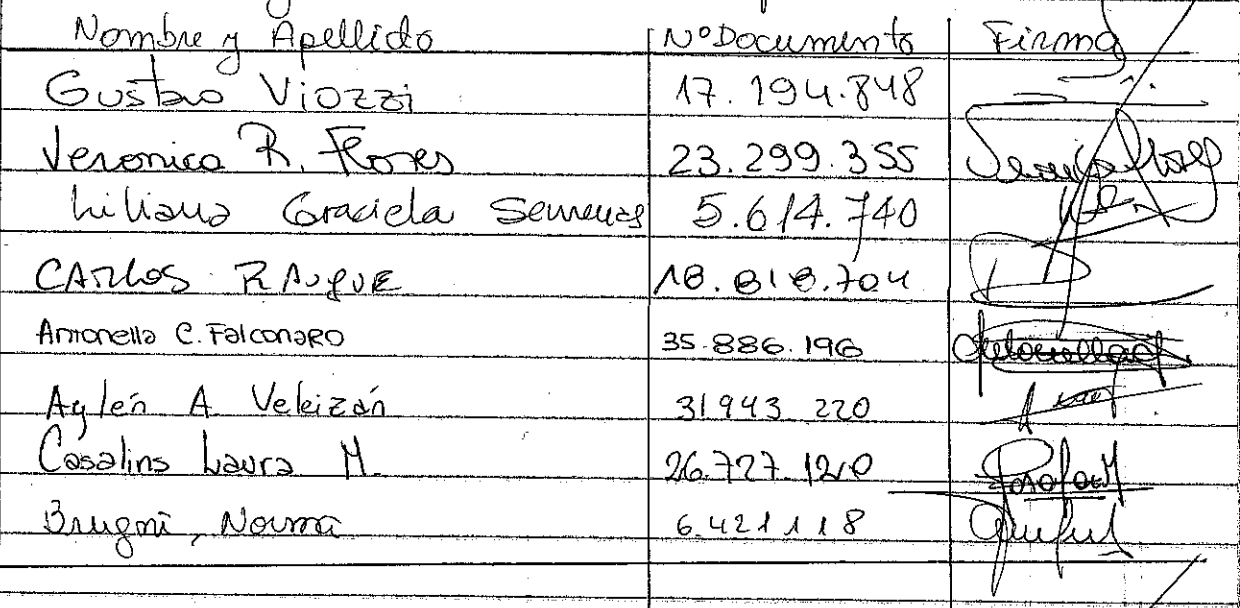 Nombre y Apellido NºDocumento Firma
Gustavo Viozzi 17.194.848
Veronica R. Flores 23.299.355
Liliana Graciela Semenas 5.614.740
CARlos RAUQUE 18.818.704
Antonella C. FalconaRO 35.886.196
Aylén A Veleizán 31943 220
Casalins Laura M. 26.727.120
Brugni, Norma 6.421118